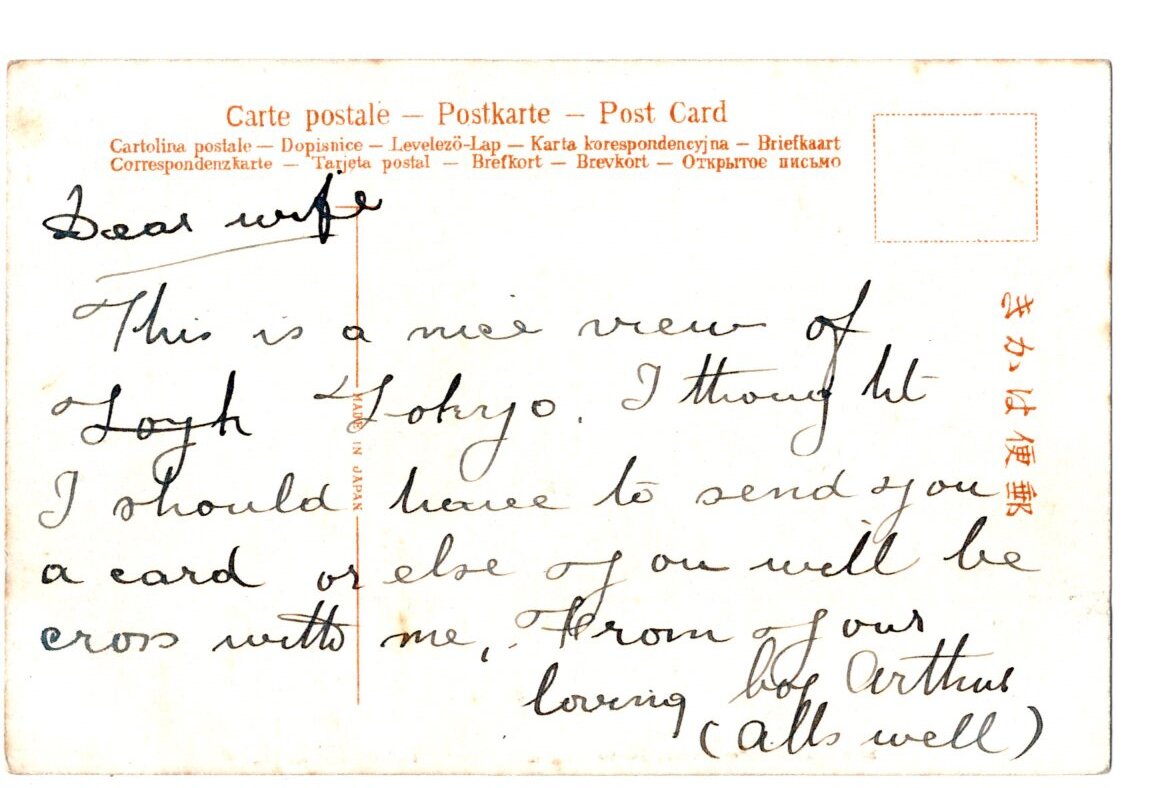 Carte postale — Postkarte — Post Card
Cartolina postale — Dopisnice — Levelező-Lap — Karta korespondencyjna — Briefkaart
Correspondenzkarte — Tarjeta postal — Brefkort — Brevkort — Открытое письмо
Dear wife
This is a nice view of
Toyk Tokryo. I thought
I should have to send you
a card or else you will be
cross with me, . From your
loving boy Arthur
(Alls well)
MADE IN JAPAN
きかは便郵